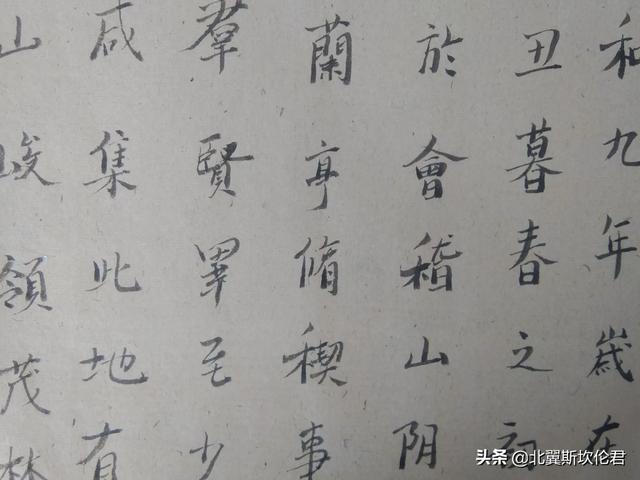 和九年歲在
丑暮春之初
於會稽山阴
蘭亭脩稧事
羣賢畢至少
咸集此地有
山峻領茂林
头条 @北翼斯坎伦君